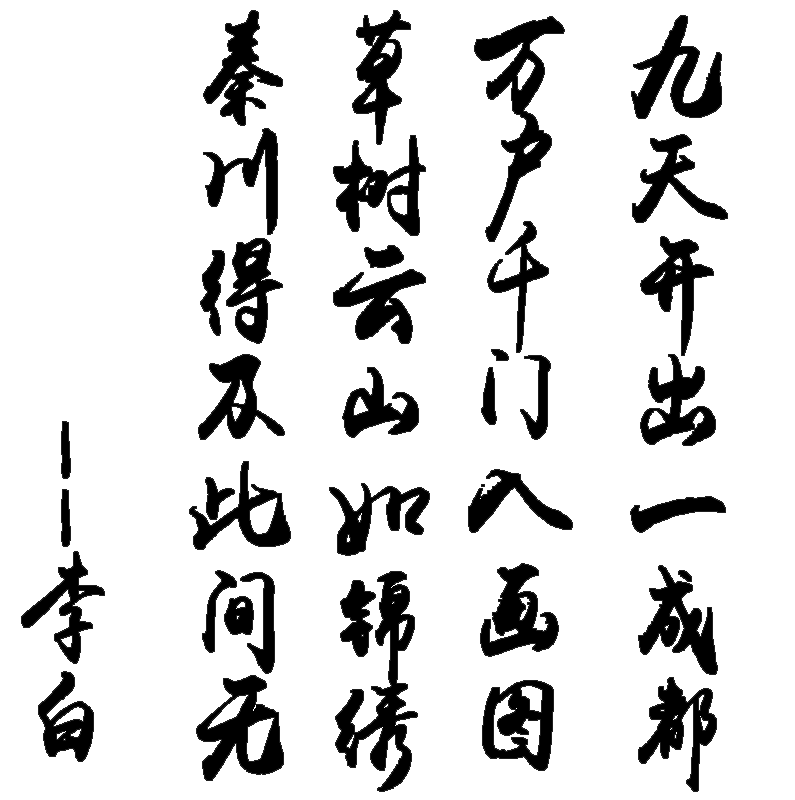 九天开出一成都
万户千门入画图
草树云山如锦绣
秦川得及此间无
——李白